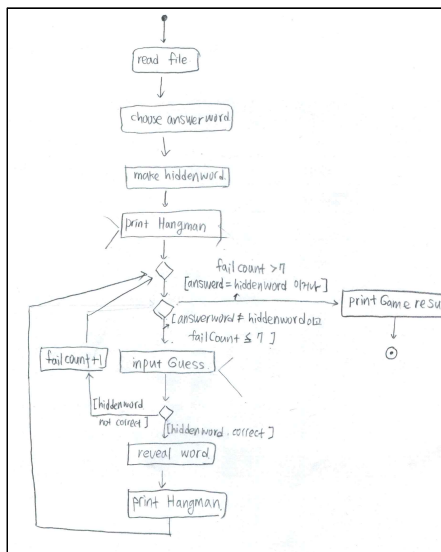 read file
choose answerword
make hiddenword
print Hangman
fail count >7
[answerd = hiddenword 이거나]
print Game resu
[answerword ≠ hiddenword이고
failCount ≤ 7 ]
failcount+1
input Guess
[hiddenword
not correct]
[hiddenword. correct]
reveal word
print Hangman